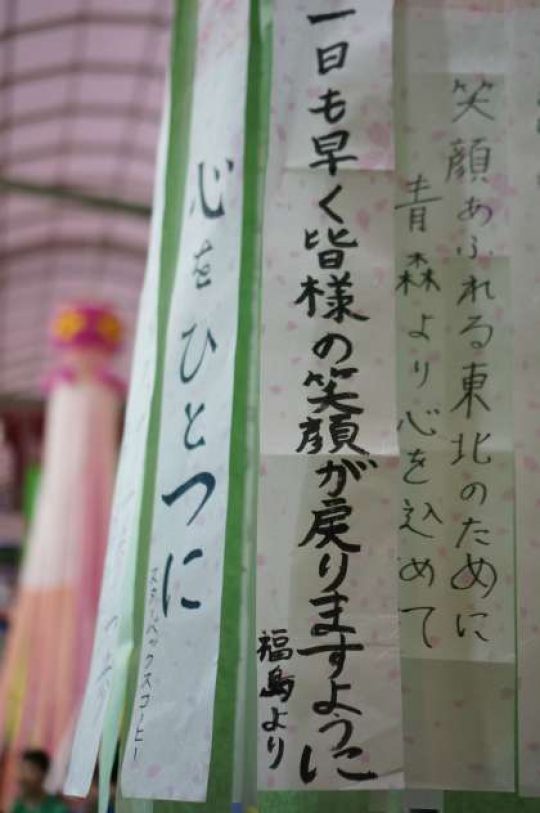 笑顔あふれる東北のために
青森より心を込めて
一日も早く皆様の笑顔が戻りますように
福島より
心をひとつに
スターバックスコーヒー